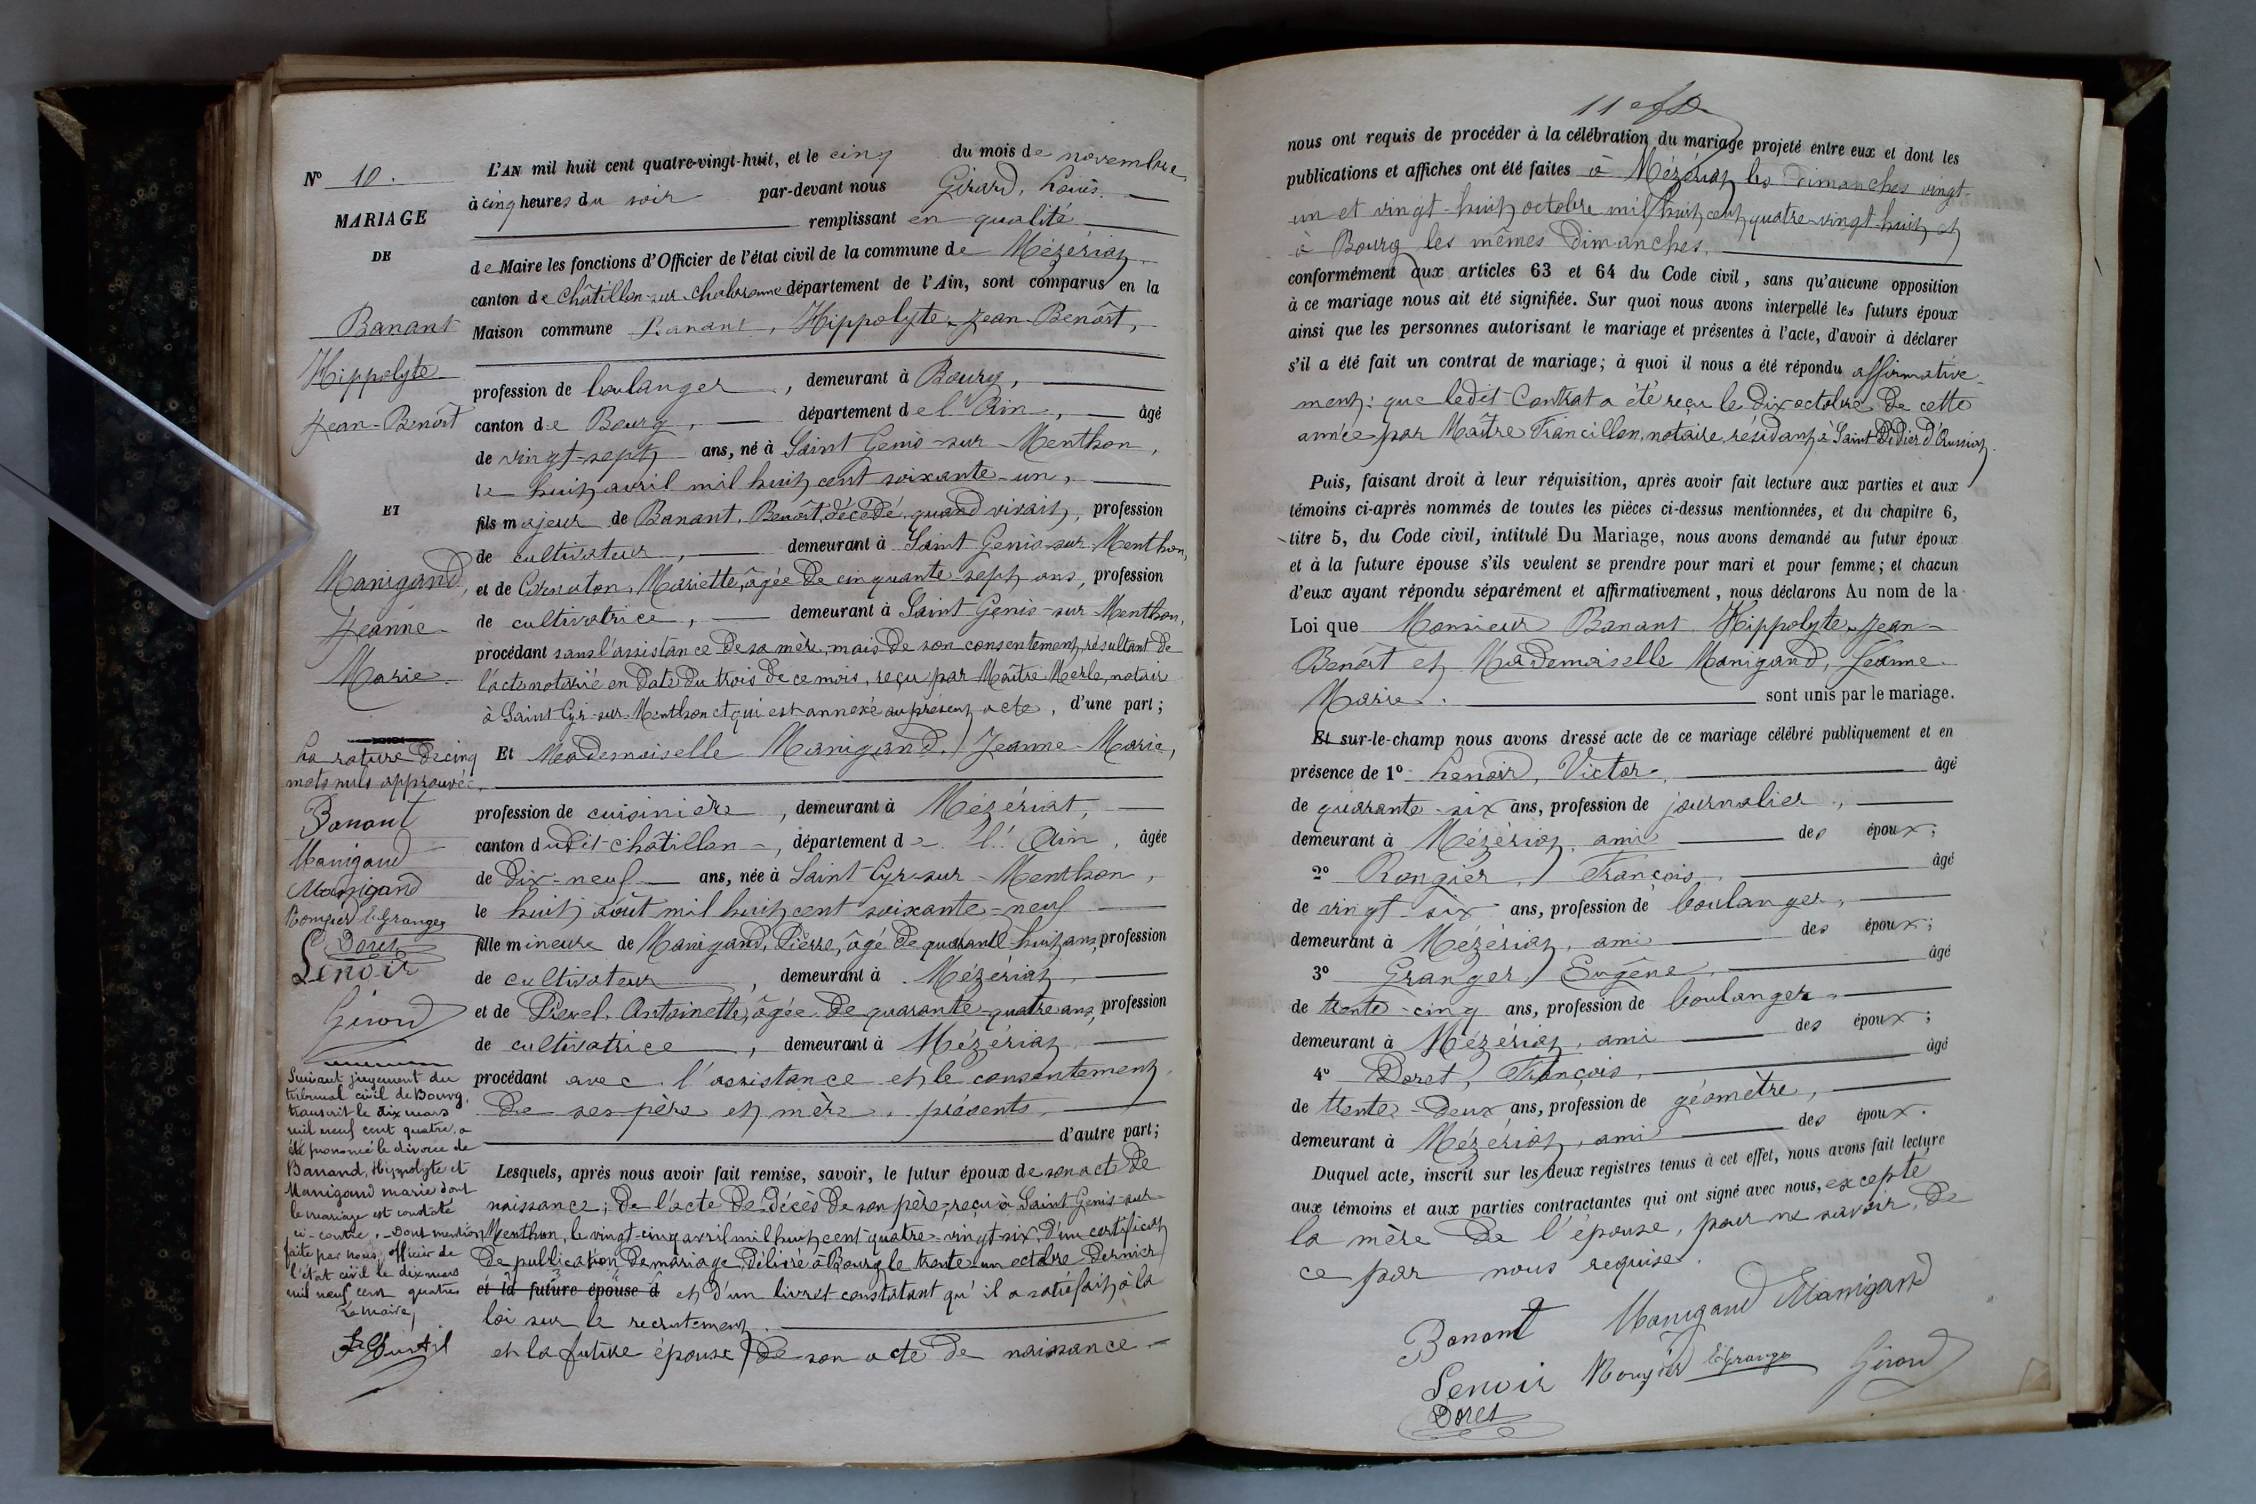 N° 10.
MARIAGE
DE
Banant
Hippolyte
Jean-Benôit
ET
Manigand,
Jeanne
Marie.
La rature de cinq
mots nuls approuvée.
Banant
Manigand
Manigand
Rongier E. Granger
Doret
Lenoir
Girard
Suivant jugement du
tribunal civil de Bourg,
transcrit le dix mars
mil neuf cent quatre, a
été prononcé le divorce de
Banand, Hippolyte et
Manigand marie dont
le mariage est constaté
ci-contre. - Dont mention
faite par nous, officier de
l'état civil le dix mars
mil neuf cent quatre
Le maire,
L'AN mil huit cent quatre-vingt-huit, et le cinq du mois de novembre
à cinq heures du soir par-devant nous Girard, Louis.
remplissant en qualité
de Maire les fonctions d'Officier de l'état civil de la commune de Mézériat
canton de Châtillon-sur-Chalaronne département de l'Ain, sont comparus en la
Maison commune Banant, Hippolyte-Jean-Benôit,
profession de boulanger, demeurant à Bourg,
canton de Bourg, département de l'Ain, âgé
de vingt-sept ans, né à Saint Genis-sur-Menthon,
le huit avril mil huit cent soixante-un,
fils majeur de Banant, Benôit, décédé, quand vivait, profession
de cultivateur, demeurant à Saint Genis-sur-Menthon,
et de Mariette, âgée de cinquante-sept ans, profession
de cultivatrice, demeurant à Saint Genis-sur-Menthon,
procédant sans l'assistance de sa mère, mais de son consentement, résultant de
l'acte notarié en date du trois de ce mois, reçu par Maître Merle, notaire
à Saint Cyr-sur-Menthon et qui est annexé au présent acte, d'une part;
Et Mademoiselle Manigand, Jeanne-Marie,
profession de cuisinière, demeurant à Mézériat,
canton dudit Châtillon, département de l'Ain, âgée
de dix-neuf ans, née à Saint-Cyr-sur-Menthon,
le huit août mil huit cent soixante-neuf
fille mineure de Manigand, Pierre, âgé de quarante-huit ans, profession
de cultivateur, demeurant à Mézériat,
et de Antoinette, âgée de quarante-quatre ans, profession
de cultivatrice, demeurant à Mézériat
procédant avec l'assistance et le consentement
de ses père et mère, présents,
d'autre part;
Lesquels, après nous avoir fait remise, savoir, le futur époux de son acte de
naissance; de l'acte de décès de son père, reçu à Saint Genis-sur-
Menthon, le vingt-cinq avril mil huit cent quatre-vingt-six, d'un certificat
de publication de mariage, délivré à Bourg le trente-un octobre dernier
et la future épouse d et d'un livret constatant qu'il a satisfait à la
loi sur le recrutement.
et la future épouse, de son acte de naissance.
nous ont requis de procéder à la célébration du mariage projeté entre eux et dont les
publications et affiches ont été faites à Mézériat les dimanches vingt-
un et vingt-huit octobre mil huit cent quatre-vingt-huit et
à Bourg les mêmes dimanches.
conformément aux articles 63 et 64 du Code civil, sans qu'aucune opposition
à ce mariage nous ait été signifiée. Sur quoi nous avons interpellé les futurs époux
ainsi que les personnes autorisant le mariage et présentes à l'acte, d'avoir à déclarer
s'il a été fait un contrat de mariage; à quoi il nous a été répondu affirmative-
ment: que ledit Contrat a été reçu le dix octobre de cette
année par Maître Francillon, notaire, résidant à Saint Didier d'Aussiat.
Puis, faisant droit à leur réquisition, après avoir fait lecture aux parties et aux
témoins ci-après nommés de toutes les pièces ci-dessus mentionnées, et du chapitre 6,
titre 5, du Code civil, intitulé Du Mariage, nous avons demandé au futur époux
et à la future épouse s'ils veulent se prendre pour mari et pour femme; et chacun
d'eux ayant répondu séparément et affirmativement, nous déclarons Au nom de la
Loi que Monsieur Banant Hippolyte-Jean-
Benôit et Mademoiselle Manigand, Jeanne
Marie. sont unis par le mariage.
Et sur-le-champ nous avons dressé acte de ce mariage célébré publiquement et en
présence de 1° Lenoir, Victor, âgé
de quarante-six ans, profession de journalier,
demeurant à Mézériat, ami des époux;
2° Rongier, François, âgé
de vingt-six ans, profession de boulanger,
demeurant à Mézériat, ami des époux;
3° Granger, Eugène, âgé
de trente-cinq ans, profession de boulanger,
demeurant à Mézériat, ami des époux;
4° Doret, François, âgé
de trente-deux ans, profession de géomètre,
demeurant à Mézériat, ami des époux.
Duquel acte, inscrit sur les deux registres tenus à cet effet, nous avons fait lecture
aux témoins et aux parties contractantes qui ont signé avec nous, excepté
la mère de l'épouse, pour ne savoir, de
ce par nous requise.
Banant Manigand Manigand
Lenoir Rongier E. Granger Girard
Doret